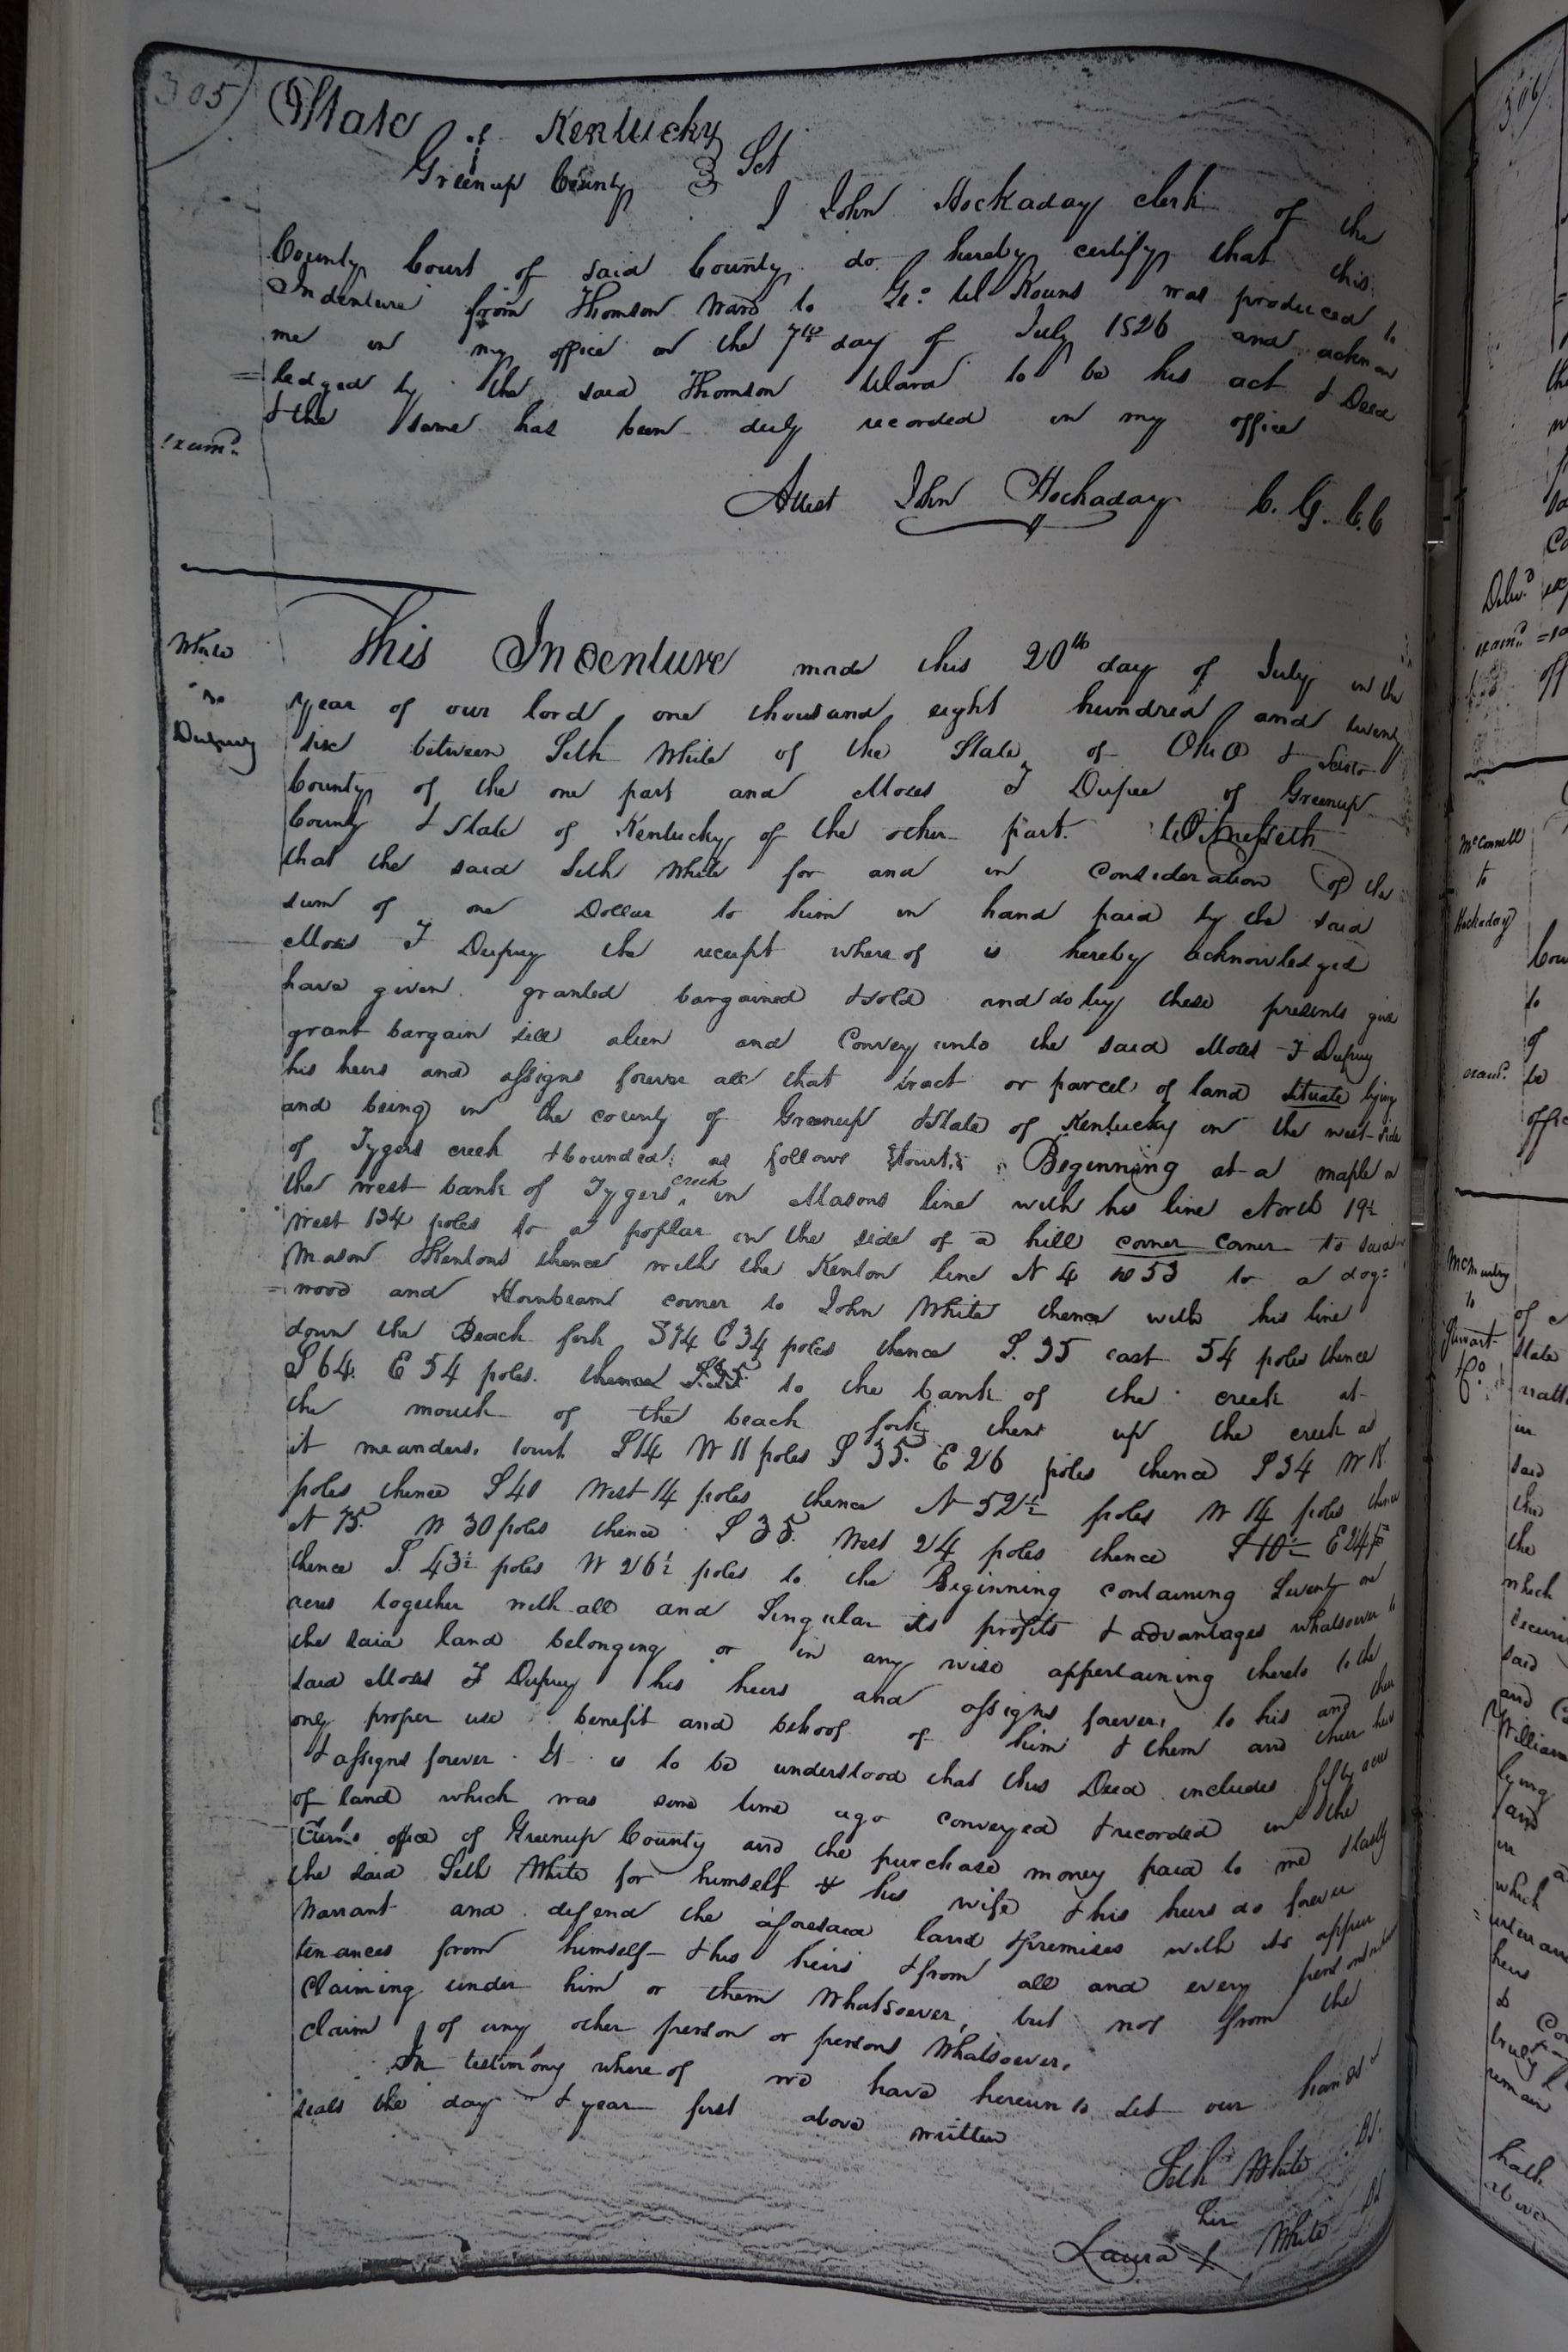 305
State of Kentucky
Greenup County } Sct
I John Hockaday clerk of the
County Court of said County do hereby certify that this
Indenture from Thomson Ward to Ge: W Kouns was produced to
me in my office on the 7th day of July 1826 and acknow
=ledged by the said Thomson Ward to be his act & Deed
& the same has been duly recorded in my office
Exam.d
Attest John Hockaday C. G. C. C
White
to
Dupuy
This Indenture made this 20th day of July in the
year of our lord one thousand eight hundred and twenty
six between Seth White of the State of Ohio & Scioto
County of the one part and Moses F Dupee of Greenup
County & State of Kentucky of the other part. Witnesseth
that the said Seth White for and in consideration of the
sum of one Dollar to him in hand paid by the said
Moses F Dupuy the receipt where of is hereby acknowledged
have given granted bargained & sold and do by these presents give
grant bargain sell alien and Convey unto the said Moses F Dupuy
his heirs and assigns forever all that tract or parcel of land situate lying
and being in the county of Greenup & State of Kentucky on the west side
of Tygers creek & bounded as follows Beginning at a maple on
the west bank of Tygers creek in Masons line with his line North 19½
West 134 poles to a poplar on the side of a hill corner corner to said
Mason & Kentons thence with the Kenton line N 4 W 53 to a dog=
=wood and Hornbeam corner to John White thence with his line
down the Beach fork S74 E34 poles thence S. 35 east 54 poles thence
S 64. E 54 poles. thence to the bank of the creek at
the mouth of the beach fork up the creek as
it meanders S14 W 11 poles S 35. E 26 poles thence S34 W 18
poles thence S40 West 14 poles thence N 52½ poles W 14 poles thence
N 75. W 30 poles thence S 35. West 24 poles thence S 10½ E 24 p
thence S. 43½ poles W 26½ poles to the Beginning containing Seventy one
acres together with all and Singular its profits & advantages whatsoever to
the said land belonging or in any wise appertaining thereto to the
said Moses F Dupuy his heirs and assigns forever, to his and their
only proper use benefit and behoof of him & them and their heirs
& assigns forever. It is to be understood that this Deed includes fifty acres
of land which was some time ago conveyed & recorded in the
Clerks office of Greenup County and the purchase money paid to me & lastly
the said Seth White for himself & his wife & his heirs do forever
Warrant and defend the aforesaid land & premises with its appur
tenances from himself & his heirs & from all and every person or persons
Claiming under him or them Whatsoever, but not from the
claim of any other person or persons Whatsoever.
In testimony where of we have hereunto set our hands &
seals the day & year first above written
Seth White
her
Laura X White